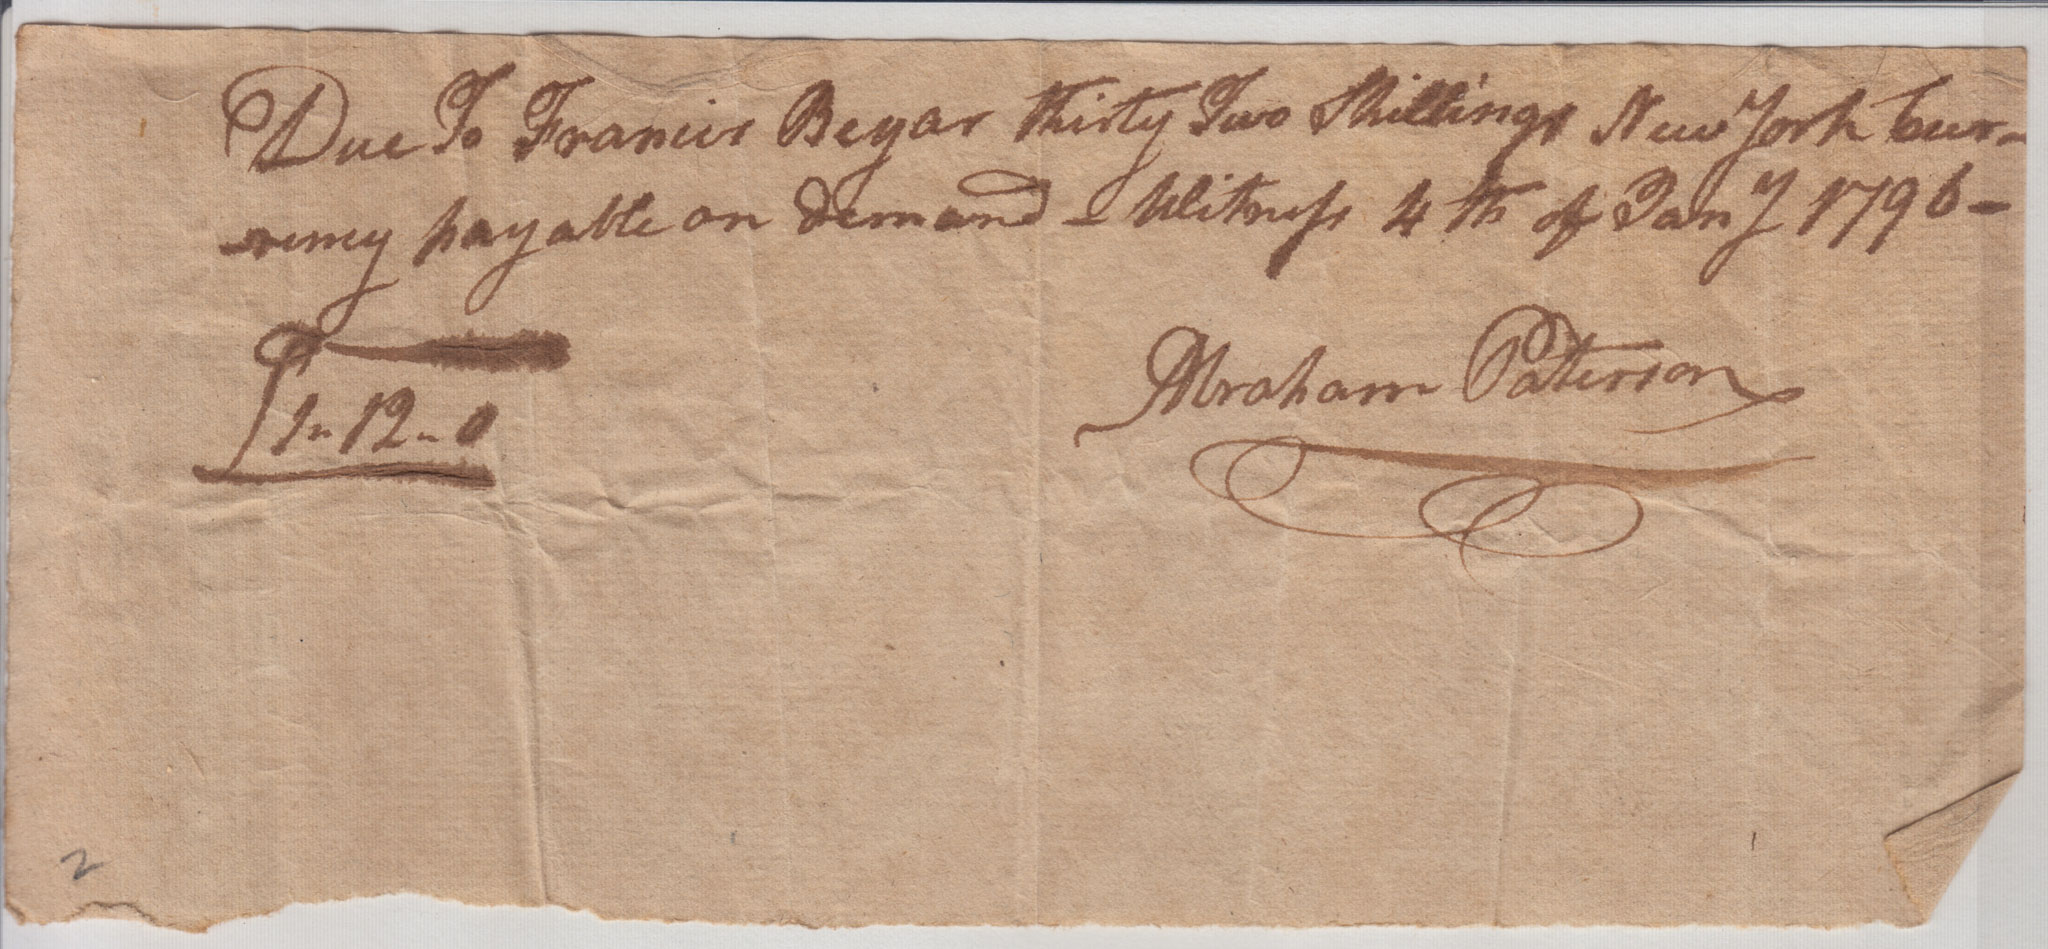 Due To Francis Begar thirty Two Shillings New York Cur-
-rency payable on demand - Witness 4th of Jany 1796 -
£1 „ 12 „ 0
Abraham Paterson
2